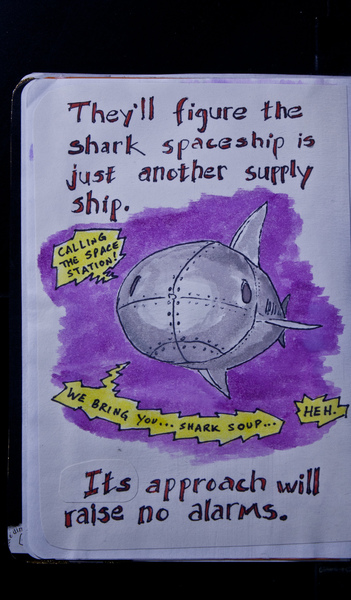 They'll figure the
shark spaceship is
just another supply
ship.
CALLING
THE SPACE
STATION!
WE BRING YOU... SHARK SOUP...
HEH.
Its approach will
raise no alarms.